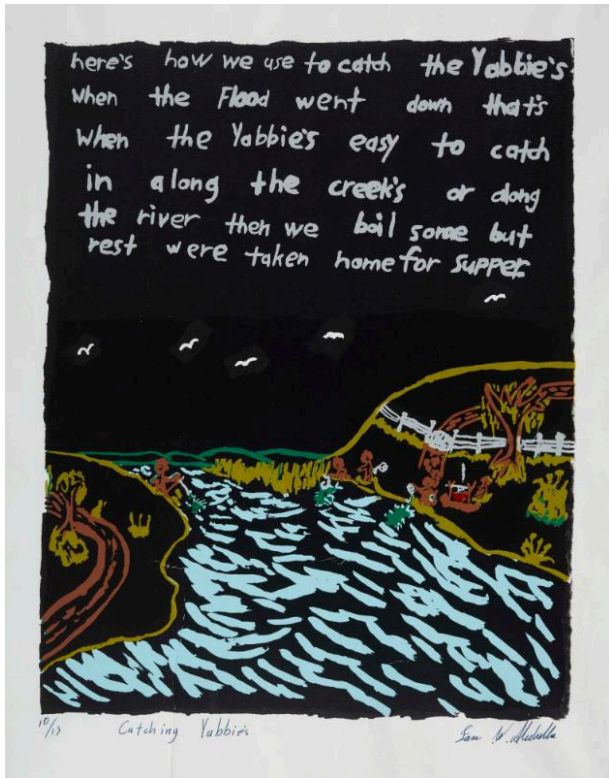 here's how we use to catch the Yabbie's
when the Flood went down that's
when the Yabbie's easy to catch
in along the creek's or along
the river then we boil some but
rest were taken home for supper
10/13 Catching Yabbie's